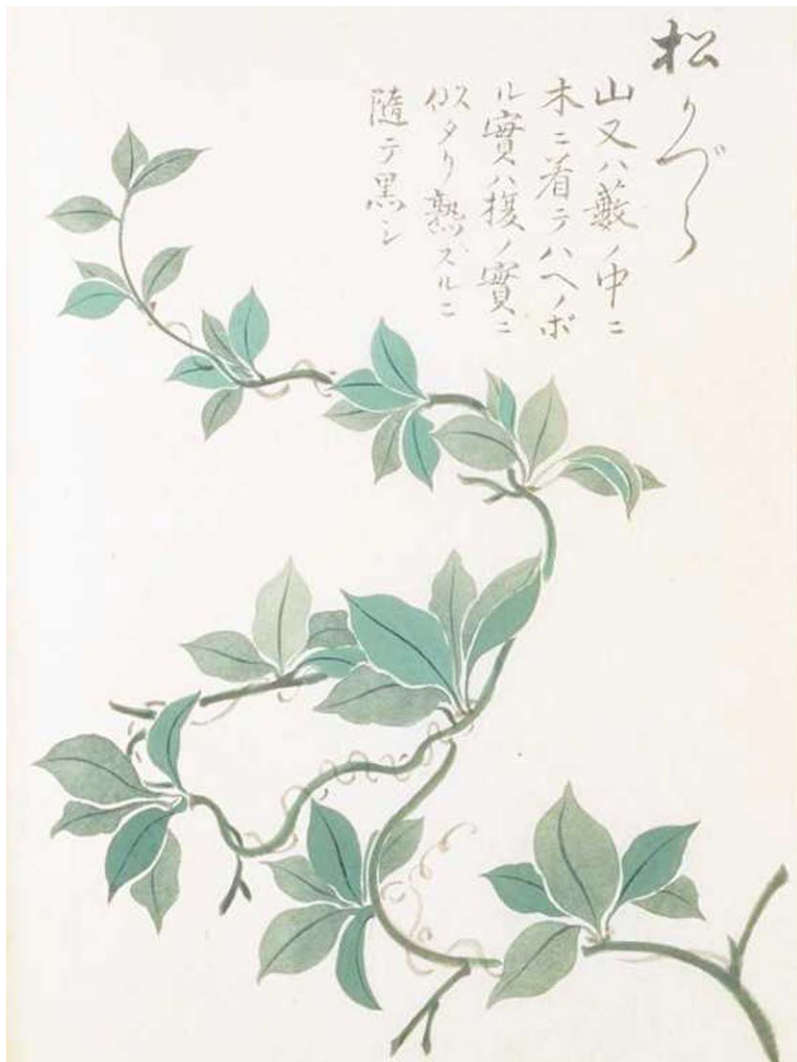 松かづら
山又ハ藪ノ中ニ
木ニ着テハヘノボ
ル實ハ榎ノ實ニ
似タリ熟ズルニ
隨テ黒シ